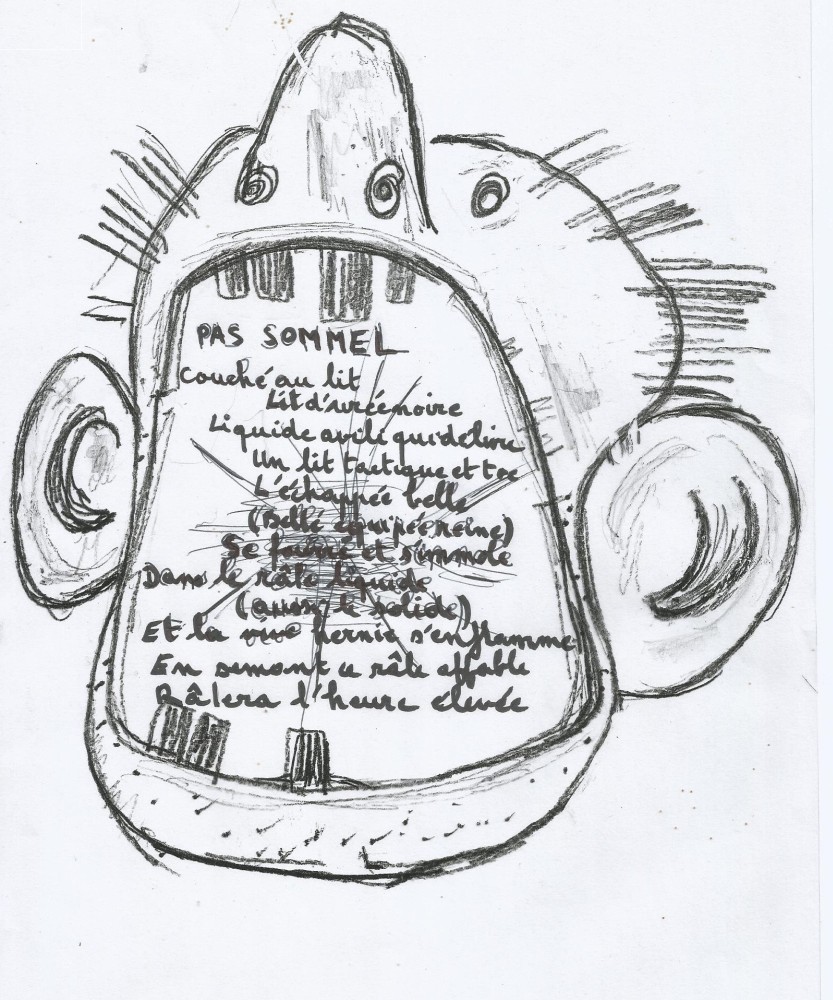 PAS SOMMEL
Couché au lit
Lit d'urée noire
Liquide avili qui délire
Un lit tactique et toc
L'échappée belle
(Belle équipée reine)
Se fourre et s'immole
Dans le râle liquide
(aussi le solide)
Et la vive hernie s'enflamme
En semant u râle affable
Râlera l'heure élevée